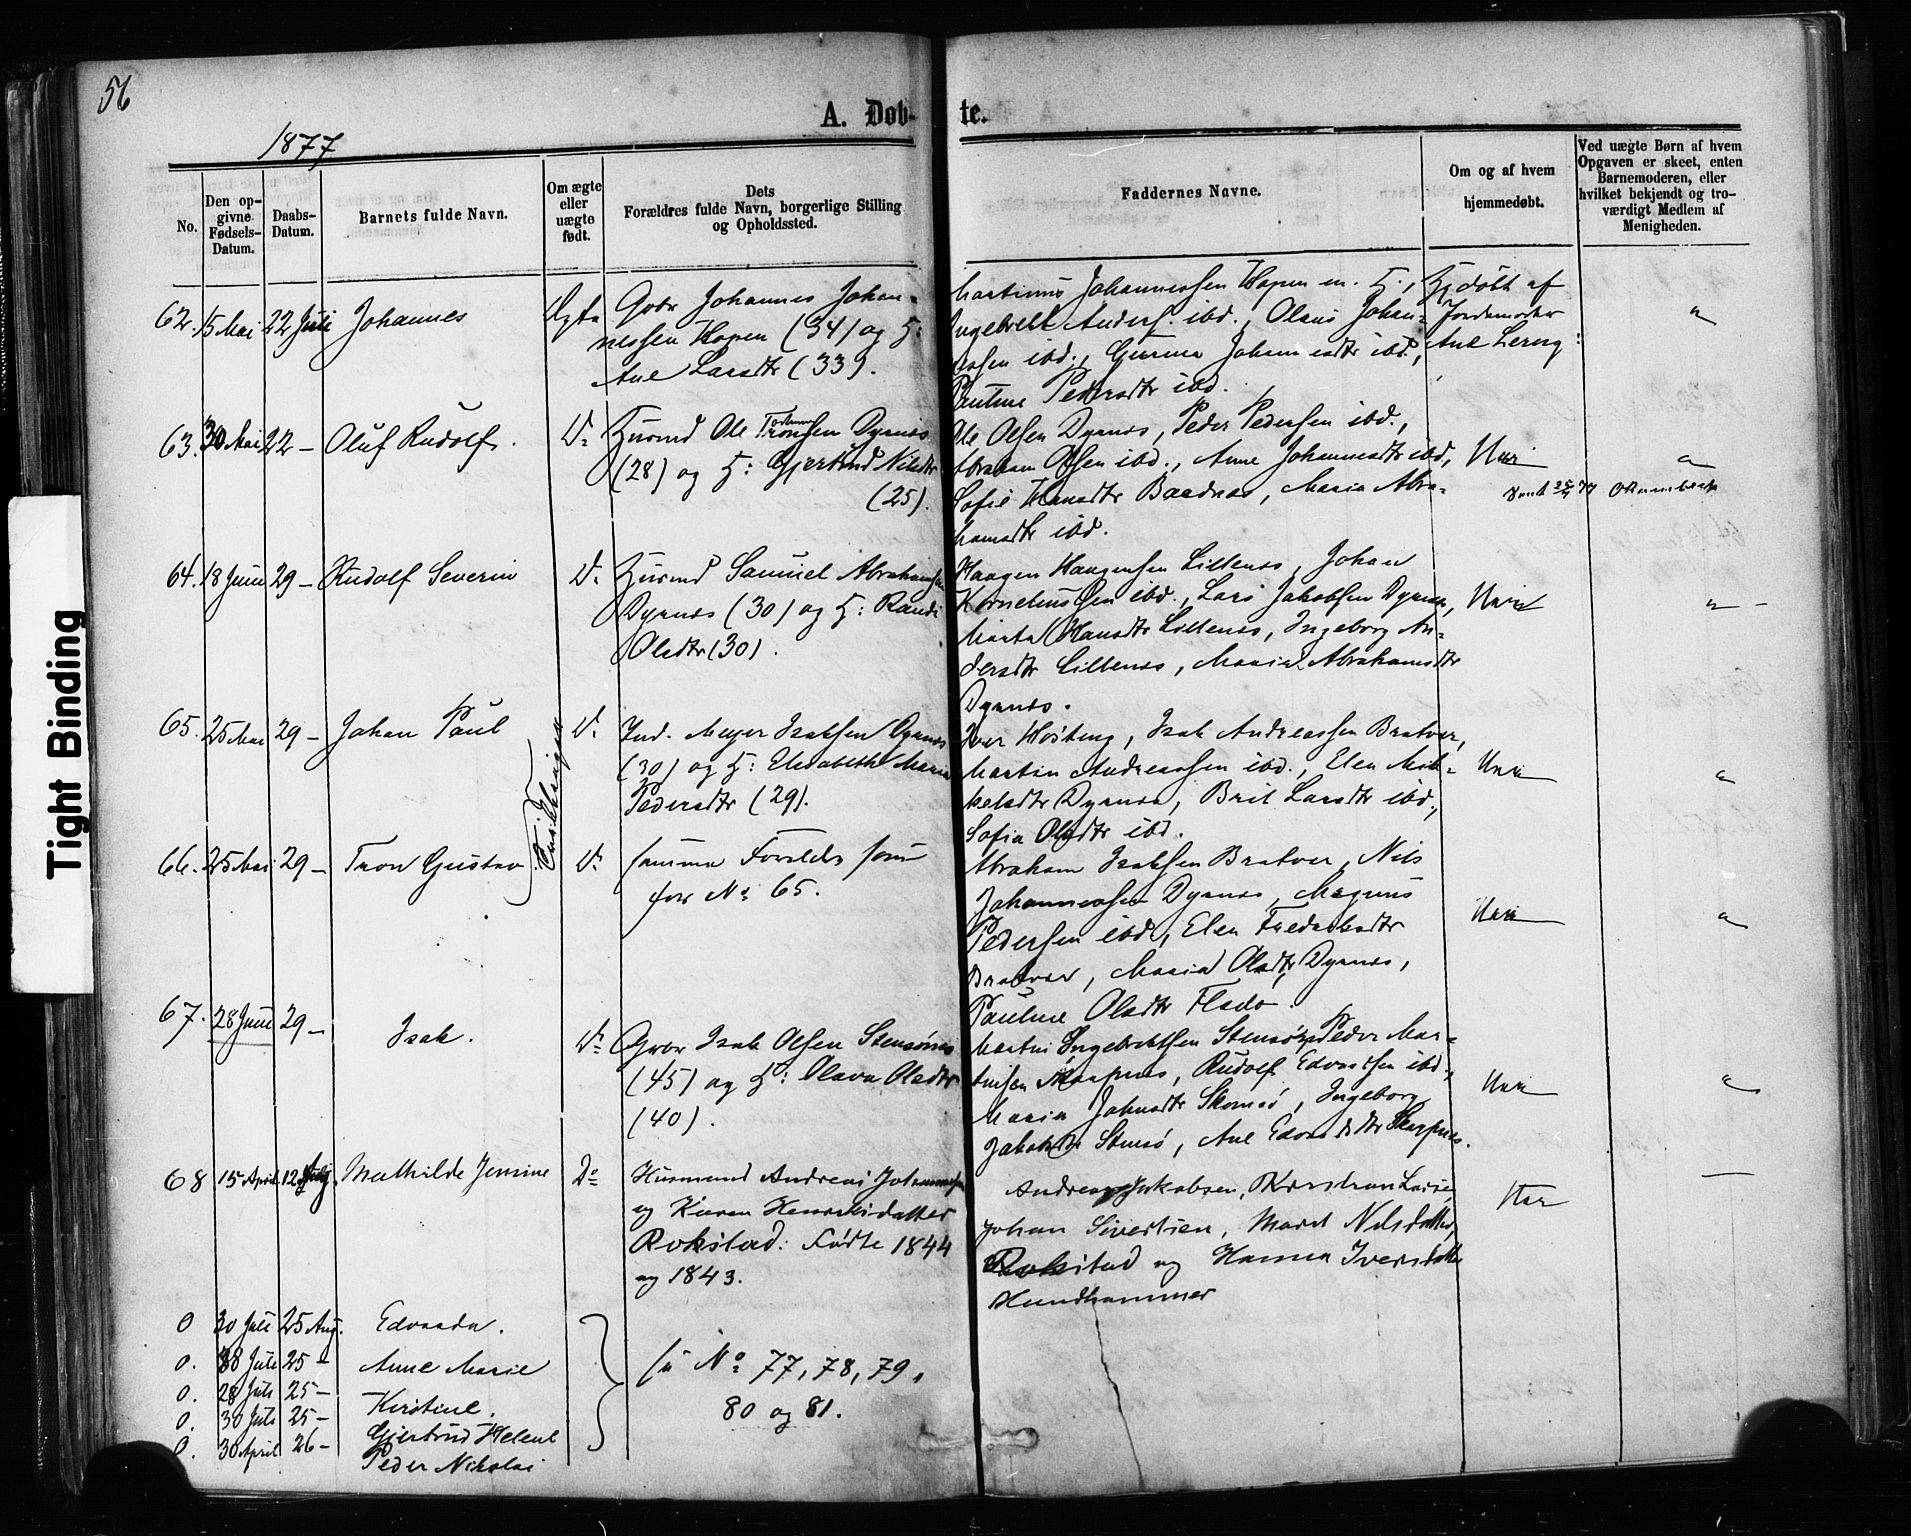 56
A. Døb-
te.
1877
No.
Den op-
givne
Fødsels-
Datum.
Daabs-
Datum.
Barnets fulde Navn.
Om ægte
eller
uægte
født.
Dets
Forældres fulde Navn, borgerlige Stilling
og Opholdssted.
Faddernes Navne.
Om og af hvem
hjemmedøbt.
Ved uægte Børn af hvem
Opgaven er skeet, enten
Barnemoderen, eller
hvilket bekjendt og tro-
værdigt Medlem af
Menigheden.
62. 15 Mai 22 Juli Johannes Ægte
Gbr Johannes Johan-
nessen Hopen (34) og H:
Ane Larsdtr (33).
Martinus Johannessen Hopen m. H.,
Ingebrekt Anders. ibd., Olaus Johan-
essen ibd., Gurina Johannesdtr ibd.,
Pauline Pedersdtr ibd.
Hjdøbt af
Jordemoder
Ane Lervg:
63. 30 Mai 22 – Oluf Rudolf. Do
Husmd Ole Tronsen Dyrnes
(28) og H: Gjertrud Nilsdtr
(25).
Ole Olsen Dyrnes, Peder Pedersen ibd.,
Abraham Olsen ibd., Anne Johannesdtr ibd,
Sofie Hansdtr Baadnes, Maria Abra-
hamsdtr ibd.
64. 18 Juni 29 – Rudolf Severin Do
Husmd Samuel Abrahamsen
Dyrnes (30) og H: Randi
Olsdtr (30).
Haagen Haagensen Lillenes, Johan
Korneliussen ibd., Lars Jakobsen Dyrnes,
Marta Hansdtr Lillenes, Ingeborg An-
dersdtr Lillenes, Maria Abrahamsdtr
Dyrnes.
65. 25 Mai 29 – Johan Paul Do
Ind. Meyer Isaksen Dyrnes
(30) og H: Elisabeth Maria
Pedersdtr (29).
Iver Hosteng, Isak Andreassen Bratvær,
Martin Andreassen ibd., Elen Mik-
kelsdtr Dyrnes, Brit Larsdtr ibd.,
Sofia Olsdtr ibd.
66. 25 Mai 29 – Tron Gustav Do
samme Forældre som
for No 65.
Abraham Isaksen Bratvær, Nils
Johannessen Dyrnes, Magnus
Pedersen ibd, Elen Frederiksdtr
Bratvær, Maria Olsdtr Dyrnes,
Pauline Olsdtr Flado.
67. 28 Juni 29 – Isak. Do
Gbr Isak Olsen Stensønes
(45) og H: Olava Olsdtr
(40).
Martin Ingebrektsen Stensø, Peder Mar-
tinsen Skarpnes, Rudolf Edvardsen ibd.,
Maria Johnsdtr Skomsø, Ingeborg
Jakobsdtr Stensø, Ane Edvardsdtr Skarpnes.
68 15 April 12 Aug Mathilde Jensine Do
Husmand Andreas Johannesen
og Karen Henriksdatter
Rokstad: Fødte 1844
og 1843.
Andreas Jakobsen, Kirstian Larsen,
Johan Sivertsen, Maret Nilsdatter,
Rokstad og Hanna Iversdatter
Hundhammer
0 30 Juli 25 Aug. Edvarda.
0. 28 Juli 25 – Anne Marie
0. 28 Juli 25 – Kirstine.
0. 30 Juli 25 – Gjertrud Helene
0. 30 April 26 – Peder Nikolai
se No 77, 78, 79,
80 og 81.
Tight Binding